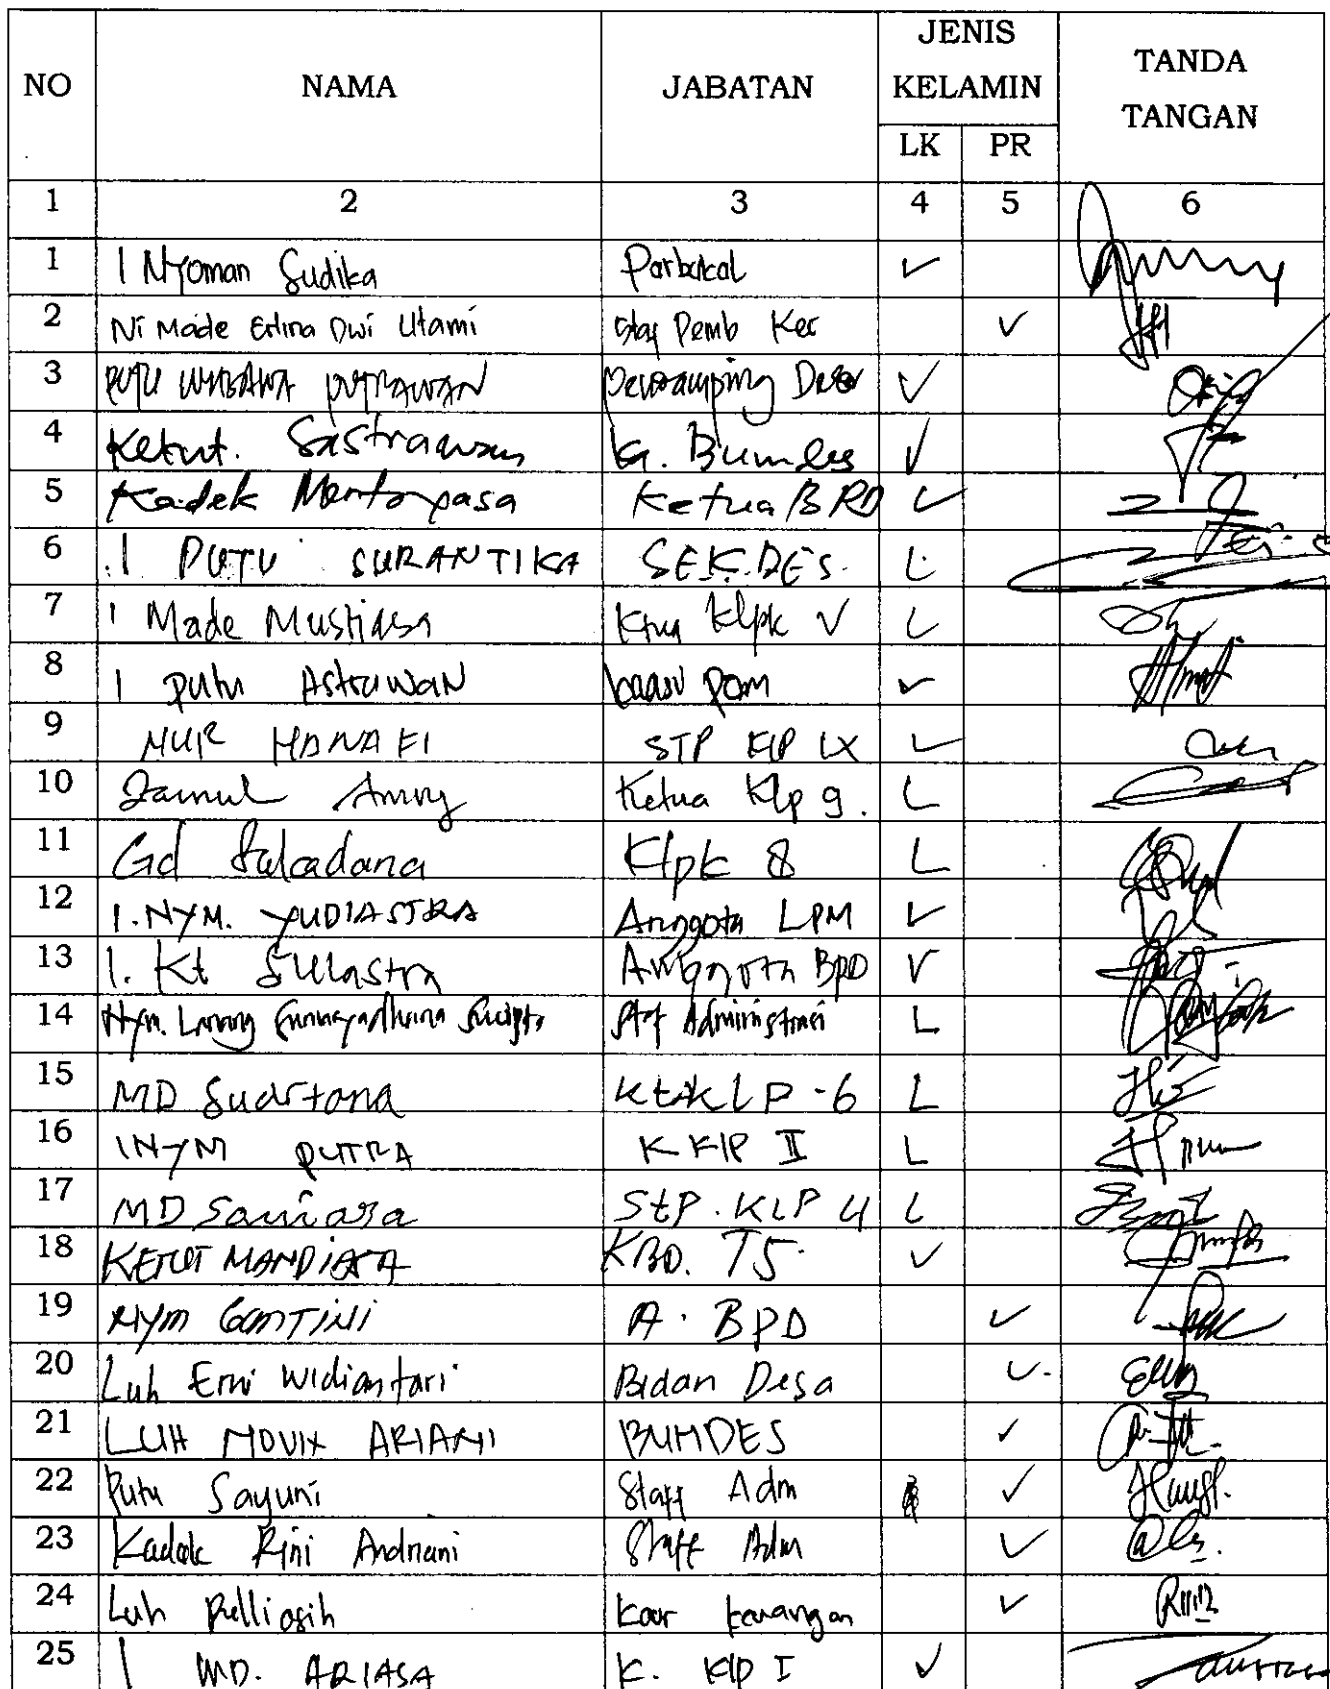 NO NAMA JABATAN JENIS KELAMIN TANDA TANGAN
LK PR
1 2 3 4 5 6
1 I Nyoman Sudika Parbukal ✓
2 Ni Made Erlina Dwi Utami Staf Pemb Kec ✓
3 PUTU WIBAWA PUTRAWAN Pendamping Desa ✓
4 Ketut. Sastrawan K. Bumdes ✓
5 Kadek Mertayasa Ketua BPD ✓
6 I PUTU SURANTIKA SEK.DES. L
7 I Made Mustiasa Ktua Klpk V L
8 I Putu Astrawan pam ✓
9 NUR HANAFI STP KLP IX ✓
10 Zainul Ketua Klp 9. L
11 Gd Sukadana Klpk 8 L
12 I. NYM. YUDIASTRA Anggota LPM ✓
13 I. Kt Sulastra Anggota BPD ✓
14 Nym. Staf Administrasi L
15 MD Sudrtana Kt KLP -6 L
16 I NYM PUTRA K KLP II L
17 MD StP. KLP 4 L
18 KETUT MANDIASA KBD. TS. ✓
19 NYM GANTINI A. BPD ✓
20 Luh Erni Widiantari Bidan Desa ✓
21 LUH NOVIX ARIANI BUMDES ✓
22 Putu Sayuni Staff Adm ✓
23 Kadek Rini Andriani Staff Adm ✓
24 Luh Kaur keuangan ✓
25 I MD. ARIASA K. Klp I ✓